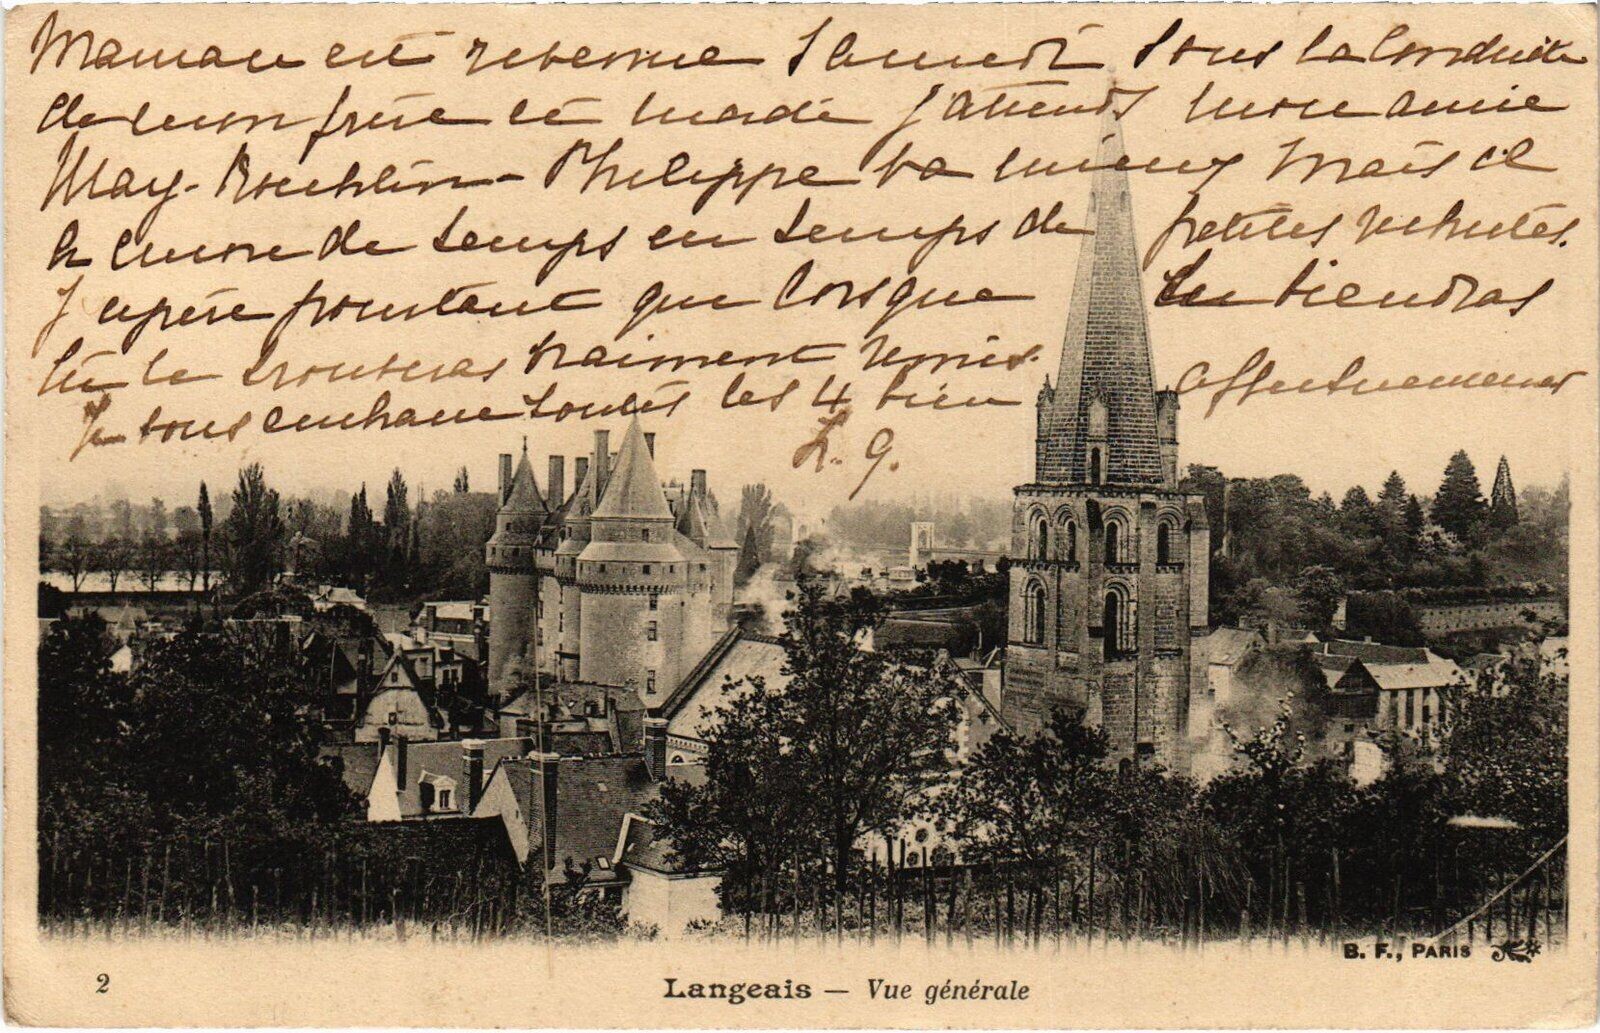 Maman est revenue Samedi sous la Conduite
de mon frère et mardi j'attends mon amie
May- Koechlin- Philippe va mieux mais il
a encore de temps en temps de petites rechutes.
J'espère pourtant que lorsque tu viendras
tu le trouveras vraiment remis. affectueusement
Je vous embrasse toutes les 4 bien
L. G.
B. F., PARIS
2
Langeais — Vue générale